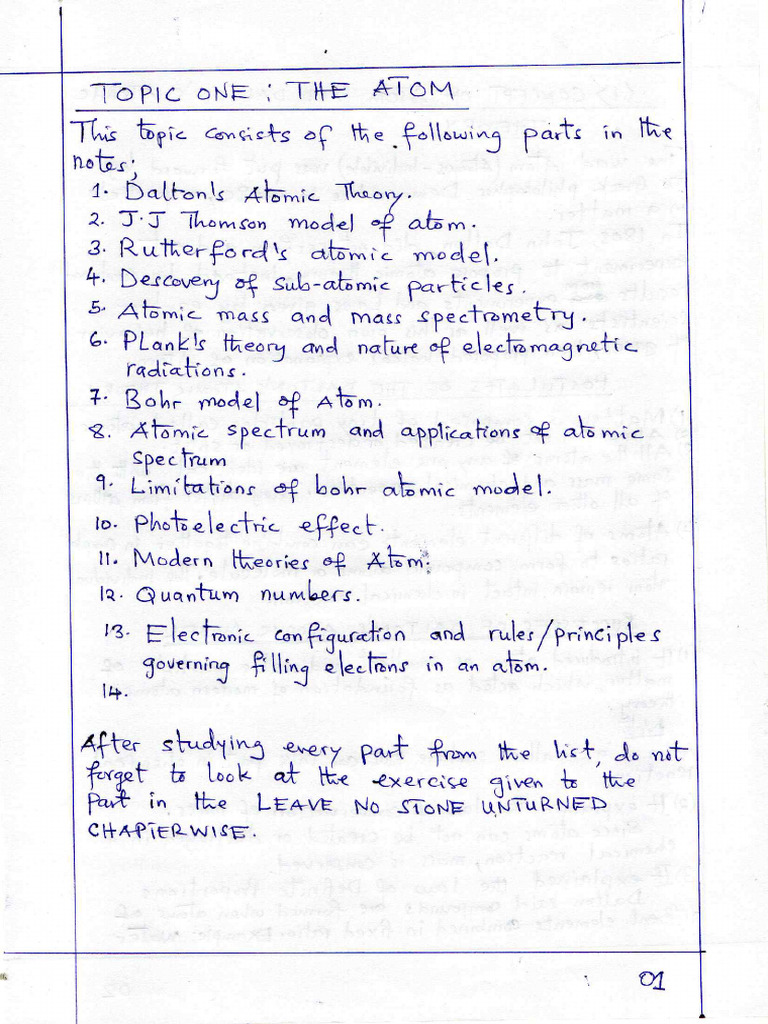 TOPIC ONE : THE ATOM
This topic consists of the following parts in the
notes;
1. Dalton's Atomic Theory.
2. J.J Thomson model of atom.
3. Rutherford's atomic model.
4. Descovery of sub-atomic particles.
5. Atomic mass and mass spectrometry.
6. Plank's theory and nature of electromagnetic
radiations.
7. Bohr model of Atom.
8. Atomic spectrum and applications of atomic
spectrum
9. Limitations of bohr atomic model.
10. Photoelectric effect.
11. Modern theories of Atom.
12. Quantum numbers.
13. Electronic configuration and rules/principles
governing filling electrons in an atom.
14.
After studying every part from the list, do not
forget to look at the exercise given to the
Part in the LEAVE NO STONE UNTURNED
CHAPTERWISE.
01